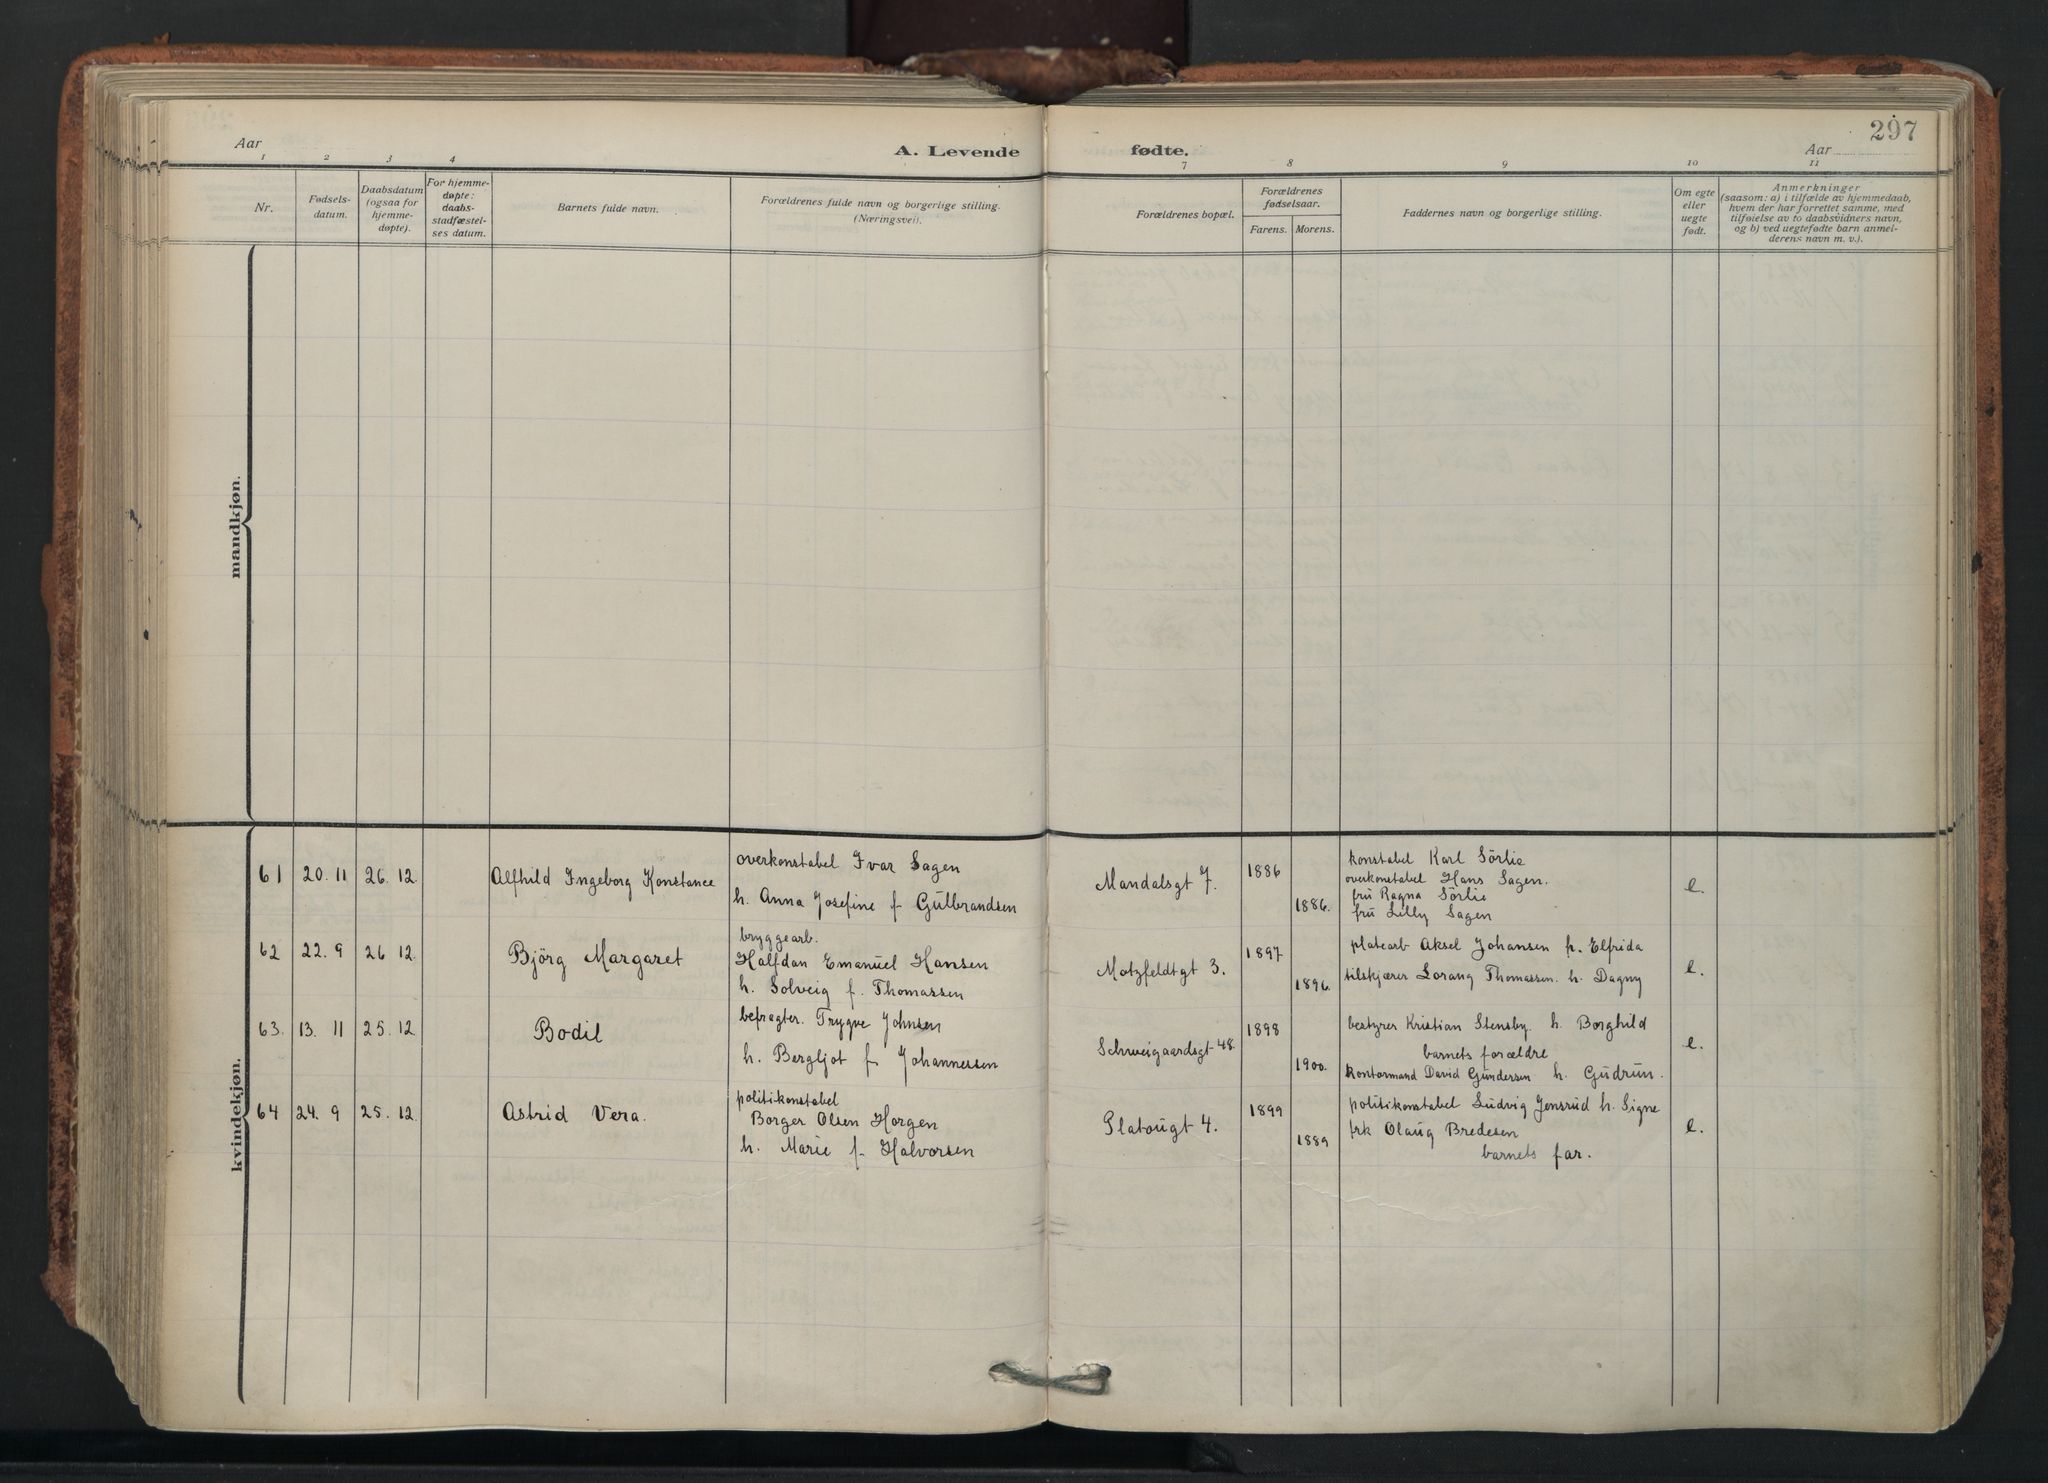 297
Aar
A. Levende fødte.
Aar
1 2 3 4 7 8 9 10 11
Nr.
Fødsels-
datum.
Daabsdatum
(ogsaa for
hjemme-
døpte).
For hjemme-
døpte:
daabs-
stadfæstel-
ses datum.
Barnets fulde navn.
Forældrenes fulde navn og borgerlige stilling.
(Næringsvei).
Forældrenes bopæl.
Forældrenes
fødselsaar.
Farens. Morens.
Faddernes navn og borgerlige stilling.
Om egte
eller
uegte
født.
Anmerkninger
(saasom: a) i tilfælde av hjemmedaab,
hvem der har forrettet samme, med
tilføielse av to daabsvidners navn,
og b) ved uegtefødte barn anmel-
derens navn m. v.).
mandkjøn.
kvindekjøn.
61 20. 11 26. 12. Alfhild Ingeborg Konstance
overkonstabel Ivar Sagen
h. Anna Josefine f. Gulbrandsen
Mandalsgt 7. 1886 1886.
konstabel Karl Sörlie
overkonstabel Hans Sagen.
fru Ragna Sörlie
fru Lilly Sagen
e.
62 22. 9 26 12. Björg Margaret
bryggearb.
Halfdan Emanuel Hansen
h. Solveig f. Thomassen
Motzfeldtgt 3. 1897 1896.
platearb Aksel Johansen h. Elfrida
tilskjærer Lorang Thomassen. h. Dagny
e.
63. 13. 11 25. 12. Bodil
befragter. Trygve Johnsen
h. Bergljot f. Johannessen
Schweigaardsgt 48. 1898 1900.
bestyrer Kristian Stensby. h. Borghild
barnets forældre
kontormand David Gundersen h. Gudrun.
e.
64 24. 9 25. 12. Astrid Vera.
politikonstabel
Borger Olsen Horgen
h. Marie f. Halvorsen
Platougt 4. 1899 1889
politikonstabel Ludvig Jensrud h. Signe
frk Olaug Bredesen
barnets far.
e.